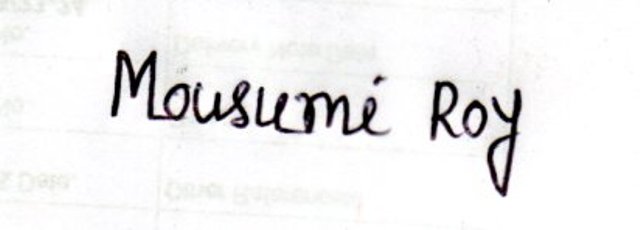 Mousumi Roy